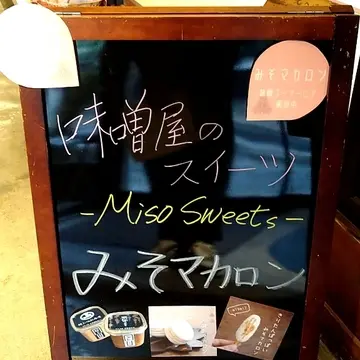 みそマカロン
味噌屋の
スイーツ
-Miso Sweets-
みそマカロン